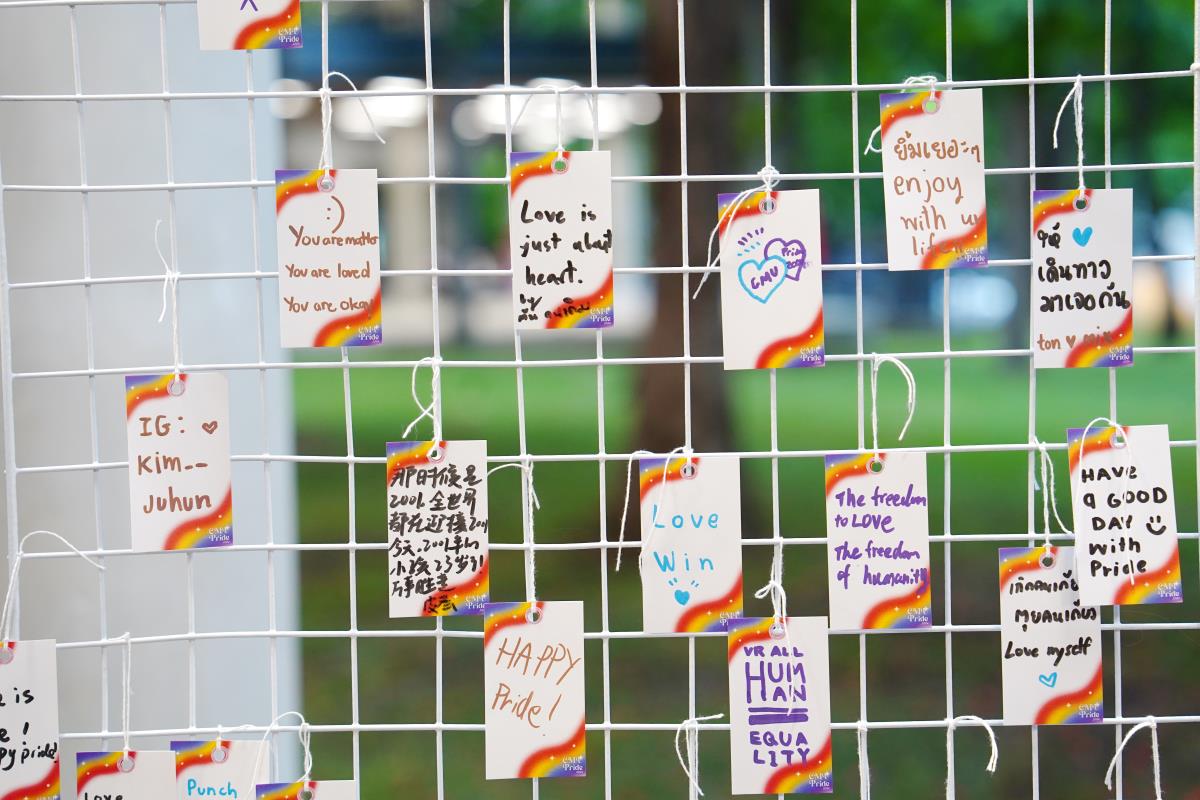 CMU
Pride
:)
You are matter
You are loved
You are okay
CMU
Pride
Love is
just about
heart.
by
CMU
Pride
CMU
Pride
CMU
Pride
ยิ้มเยอะๆ
enjoy
with ur
life
Pride
เดินทาง
มาเจอกัน
ton
CMU
Pride
IG:
Kim__
Juhun
CMU
Pride
那時候是
2001,全世界
都在迎接2001
今天,2001年的
小孩23岁了!
CMU
Pride
Love
Win
CMU
Pride
The freedom
to LOVE
The freedom
of humanity
CMU
Pride
HAVE
A GOOD
DAY
with
Pride
CMU
Pride
เกิดคนเดียว
ตุยคนเดียว
Love myself
CMU
Pride
HAPPY
Pride!
CMU
Pride
VR ALL
HUM
AN
EQUA
LITY
CMU
Pride
is
!
Love
Punch